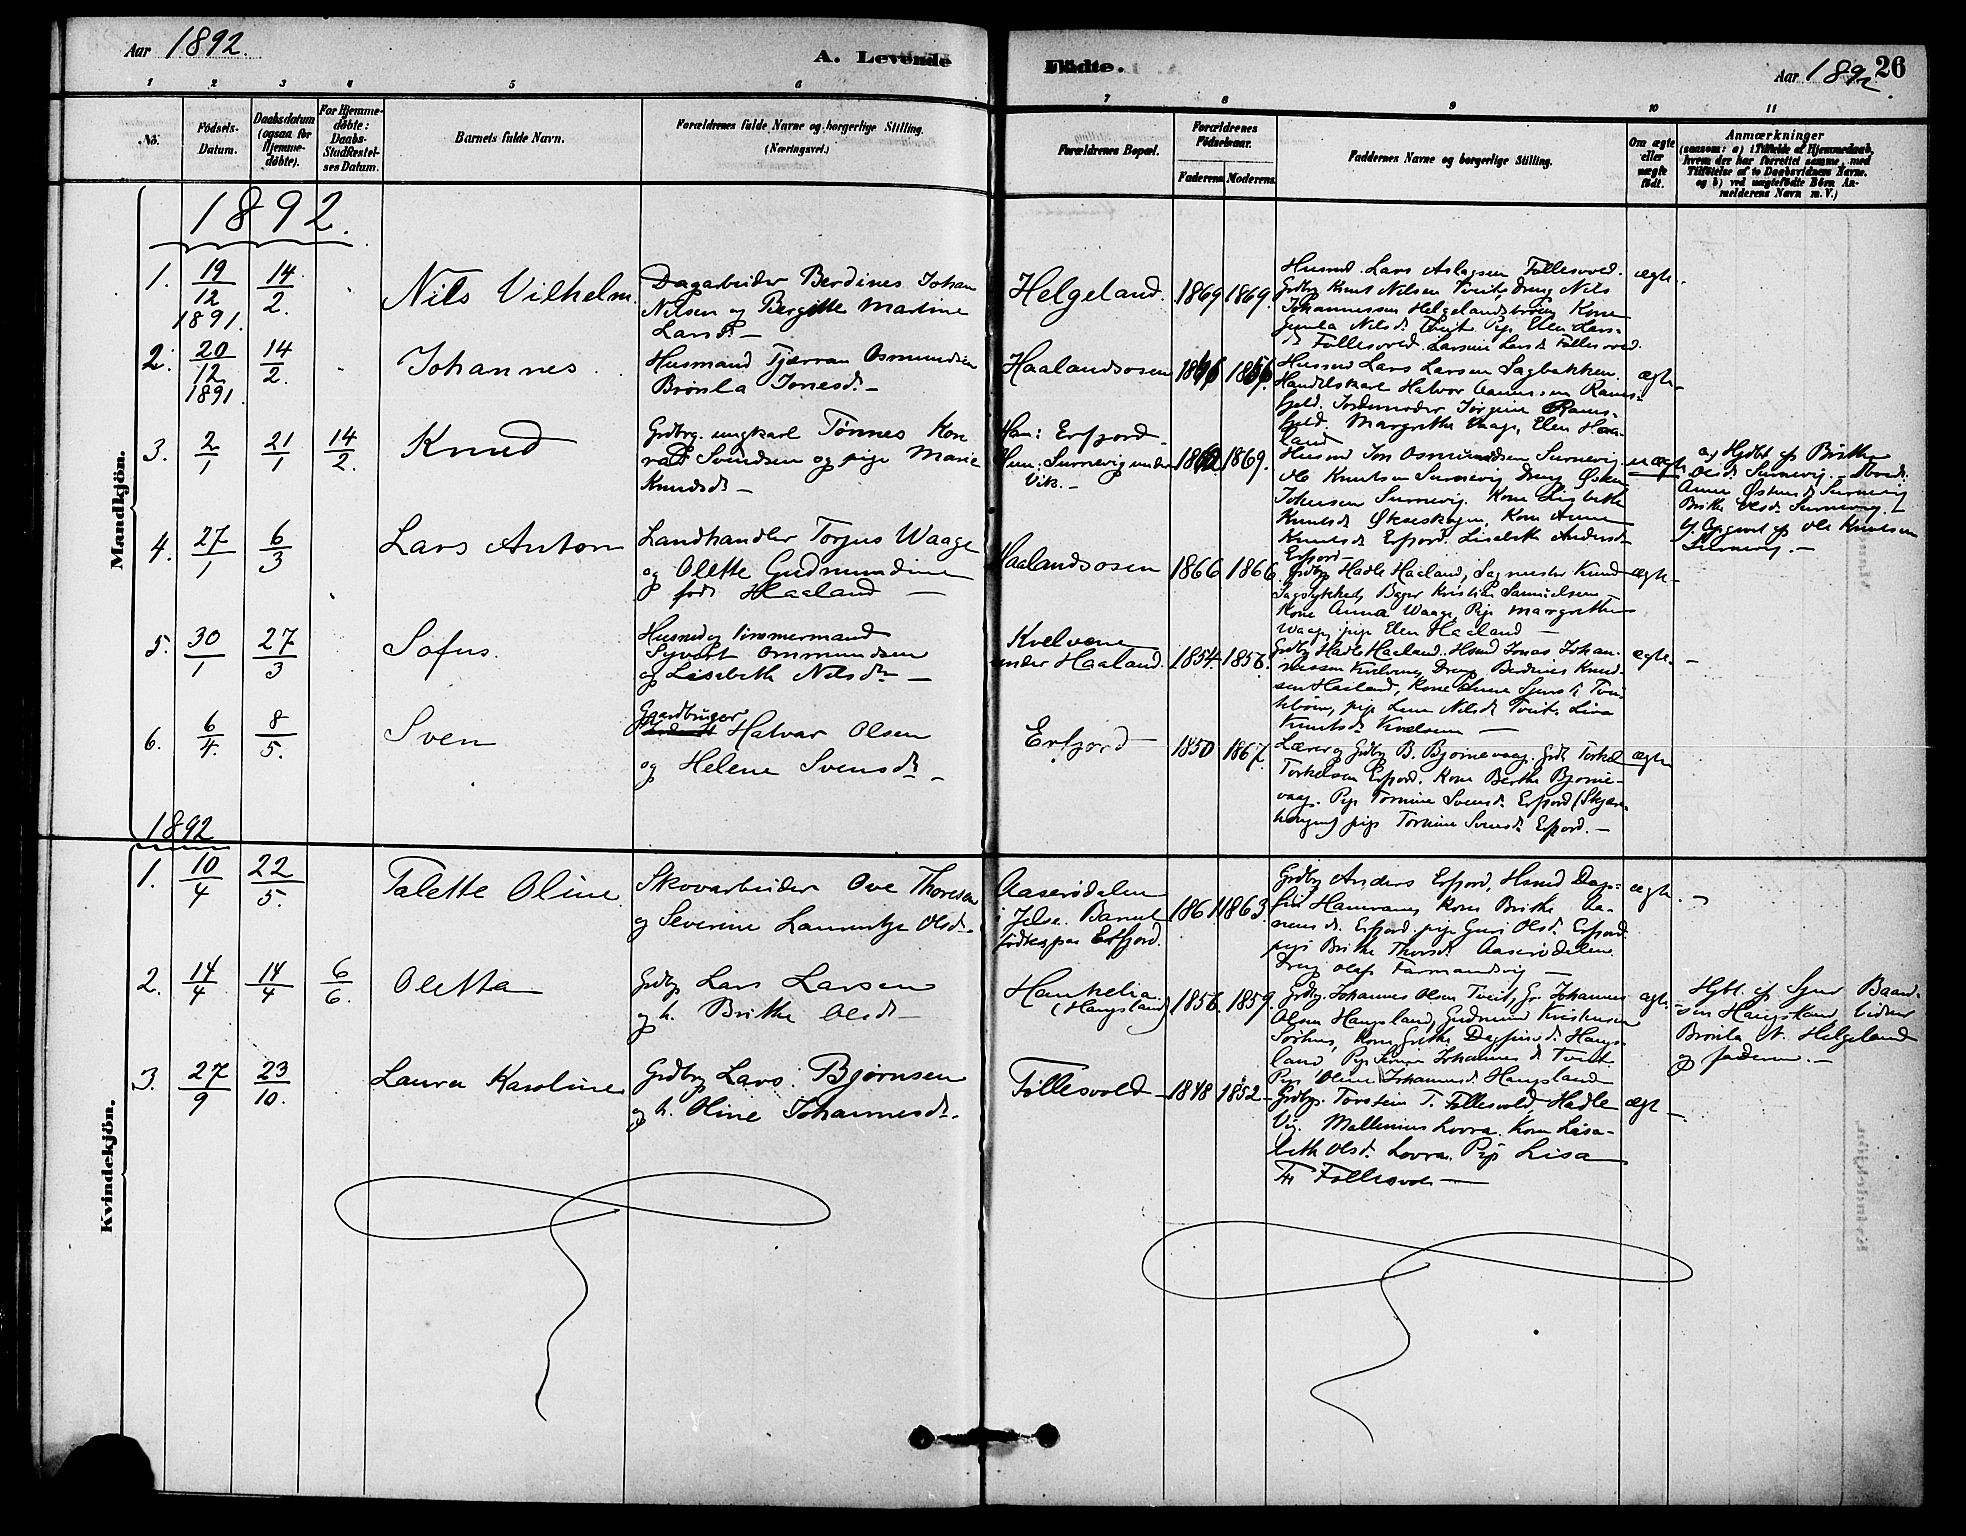 Aar 1892.
A. Levende Födte.
Aar 1892. 26
1 2 3 4 5 6 7 8 9 10 11
No.
Födsels-Datum.
Daabsdatum (ogsaa for Hjemme-döbte).
For Hjemme-döbte: Daabs-Stadfæstel-ses Datum.
Barnets fulde Navn.
Forældrenes fulde Navne og borgerlige Stilling. (Næringsvei.)
Forældrenes Bopæl.
Forældrenes Födselsaar.
Faderens Moderens.
Faddernes Navne og borgerlige Stilling.
Om ægte eller uægte født.
Anmærkninger
(saasom: a) i Tilfælde af Hjemmedaab,
hvem der har forrettet samme, med
Tilföielse af to Daabsvidners Navne,
og b) ved uægtefödte Börn An-
melderens Navn m. V.)
Mandkjön.
1892.
1. 19/12 1891. 14/2.
Nils Vilhelm.
Dagarbeider Berdines Johan
Nilsen og Bergitte Martine
Larsd. —
Helgeland. 1869 1869.
Husmd. Lars Aslagsen Follesvold.
Grdbr. Knut Nilsen Tveit, Dreng Nils
Johannessen Helgelandsbroen, Kone
Gunla Nilsd. Tveit, Pige Elen Lars-
d. Follesvold. Larsine Larsd. Follesvold.
ægte.
2. 20/12 1891. 14/2.
Johannes.
Husmand Tjærran Osmundsen
Brønla Jonesd. —
Haalandsosen 1856
Husmd Lars Larsen Sagbakken.
Handelskarl Halvor
Jordemoder Jørgine Rams-
feld. Margrethe Waage, Elen Haa-
land
ægte —
3. 2/1 21/1 14/2.
Knud
Grdbrg. ungkarl Tønnes Kon
rad Svendsen og pige Marie
Knudsd. —
Han: Erfjord —
Hun: Surnevig under
Vik. —
1869.
Husmd Jon Osmundsen Surnevig.
Ole Knutsen Surnevig Dreng Østen
Johnsen Surnevig. Kone Lisbeth
Knutsd. Kone Anne
Knutsd. Erfjord. Lisebeth Andersd.
Erfjord —
uægte
a) Hjdbt af Brithe
Olsd. Surnevig.
Anne Østensd. Surnevig
Brithe Olsd. Surnevig. —
b) Opgivet af Ole Knutsen
Surnevig. —
4. 27/1 6/3
Lars Anton
Landhandler Torjus Waage
og Olette Gudmundine
født Haaland —
Haalandsosen 1866 1866.
Grdbr. Hadle Haaland, Sagmester Knud
Bager Kristian Samuelsen —
Kone Anna Waage, Pige Margrethe
Waage, pige Elen Haaland —
ægte —
5. 30/1 27/3
Sofus.
Husmd og Tømmermand
Syvert Ommundsen
og Lisebeth Nilsd. —
Kvelvene
under Haaland. 1854.
Grdbr. Hadle Haaland. Husmd Jonas Johan-
nessen Kvelvene, Dreng Berdines Knud-
sen Haaland, Kone Anne
pige Lene Nilsd. Tveit. Lisa
Knutsd. Kvelvene —
ægte. —
6. 6/4. 8/5.
Sven
Gaardbruger
Halvar Olsen
og Helene Svensd. —
Erfjord — 1850 1867.
Lærer og Grdbr. B. Bjørnevaag. Grdb. Torkel
Torkelsen Erfjord. Kone Berthe Bjørne-
vaag. Pige Tomine Svensd. Erfjord
pige Tomine Svensd. Erfjord. —
ægte
1892
Kvindekjön.
1. 10/4 22/5.
Talette Oline
Skovarbeider Ove Thorsen
og Severine Laurentze Olsd. —
Aaserødalen
i Jelse. Barnet
født paa Erfjord.
1861 1863.
Grdbr. Anders Erfjord, Husmd Dag-
fin Hamrane, Kone Brithe Aa-
nensd. Erfjord. pige Guri Olsd. Erfjord.
pige Brithe Thorsd. Aaserødalen.
Dreng Olaf —
ægte. —
2. 14/4 14/4 6/6
Oletta
Grdbr. Lars Larsen
og h. Brithe Olsd. —
Hankelia.
(Haugsland)
1856. 1859.
Grdbr. Johannes Olsen Tveit, Gr. Johannes
Olsen Haugsland, Gudmund Kristensen
Sørhus, Kone Grethe Dagfinsd. Haugs-
land, Pige Johannesd. Tveit
Pige Oline Johannesd. Haugsland
ægte.
Hjbt. af
Haugsland, Vidner
Brønla N. Helgeland
og faderen. —
3. 27/9 23/10.
Laura Karoline
Grdbr. Lars Bjørnsen
og h. Oline Johannesd. —
Follesvold — 1848 1852 —
Grdbr. Torstein T. Follesvold, Hadle
Vig. Mallenius Lovra. Kone Lisa-
beth Olsd. Lovra. Pige Lisa
Th. Follesvold —
ægte —